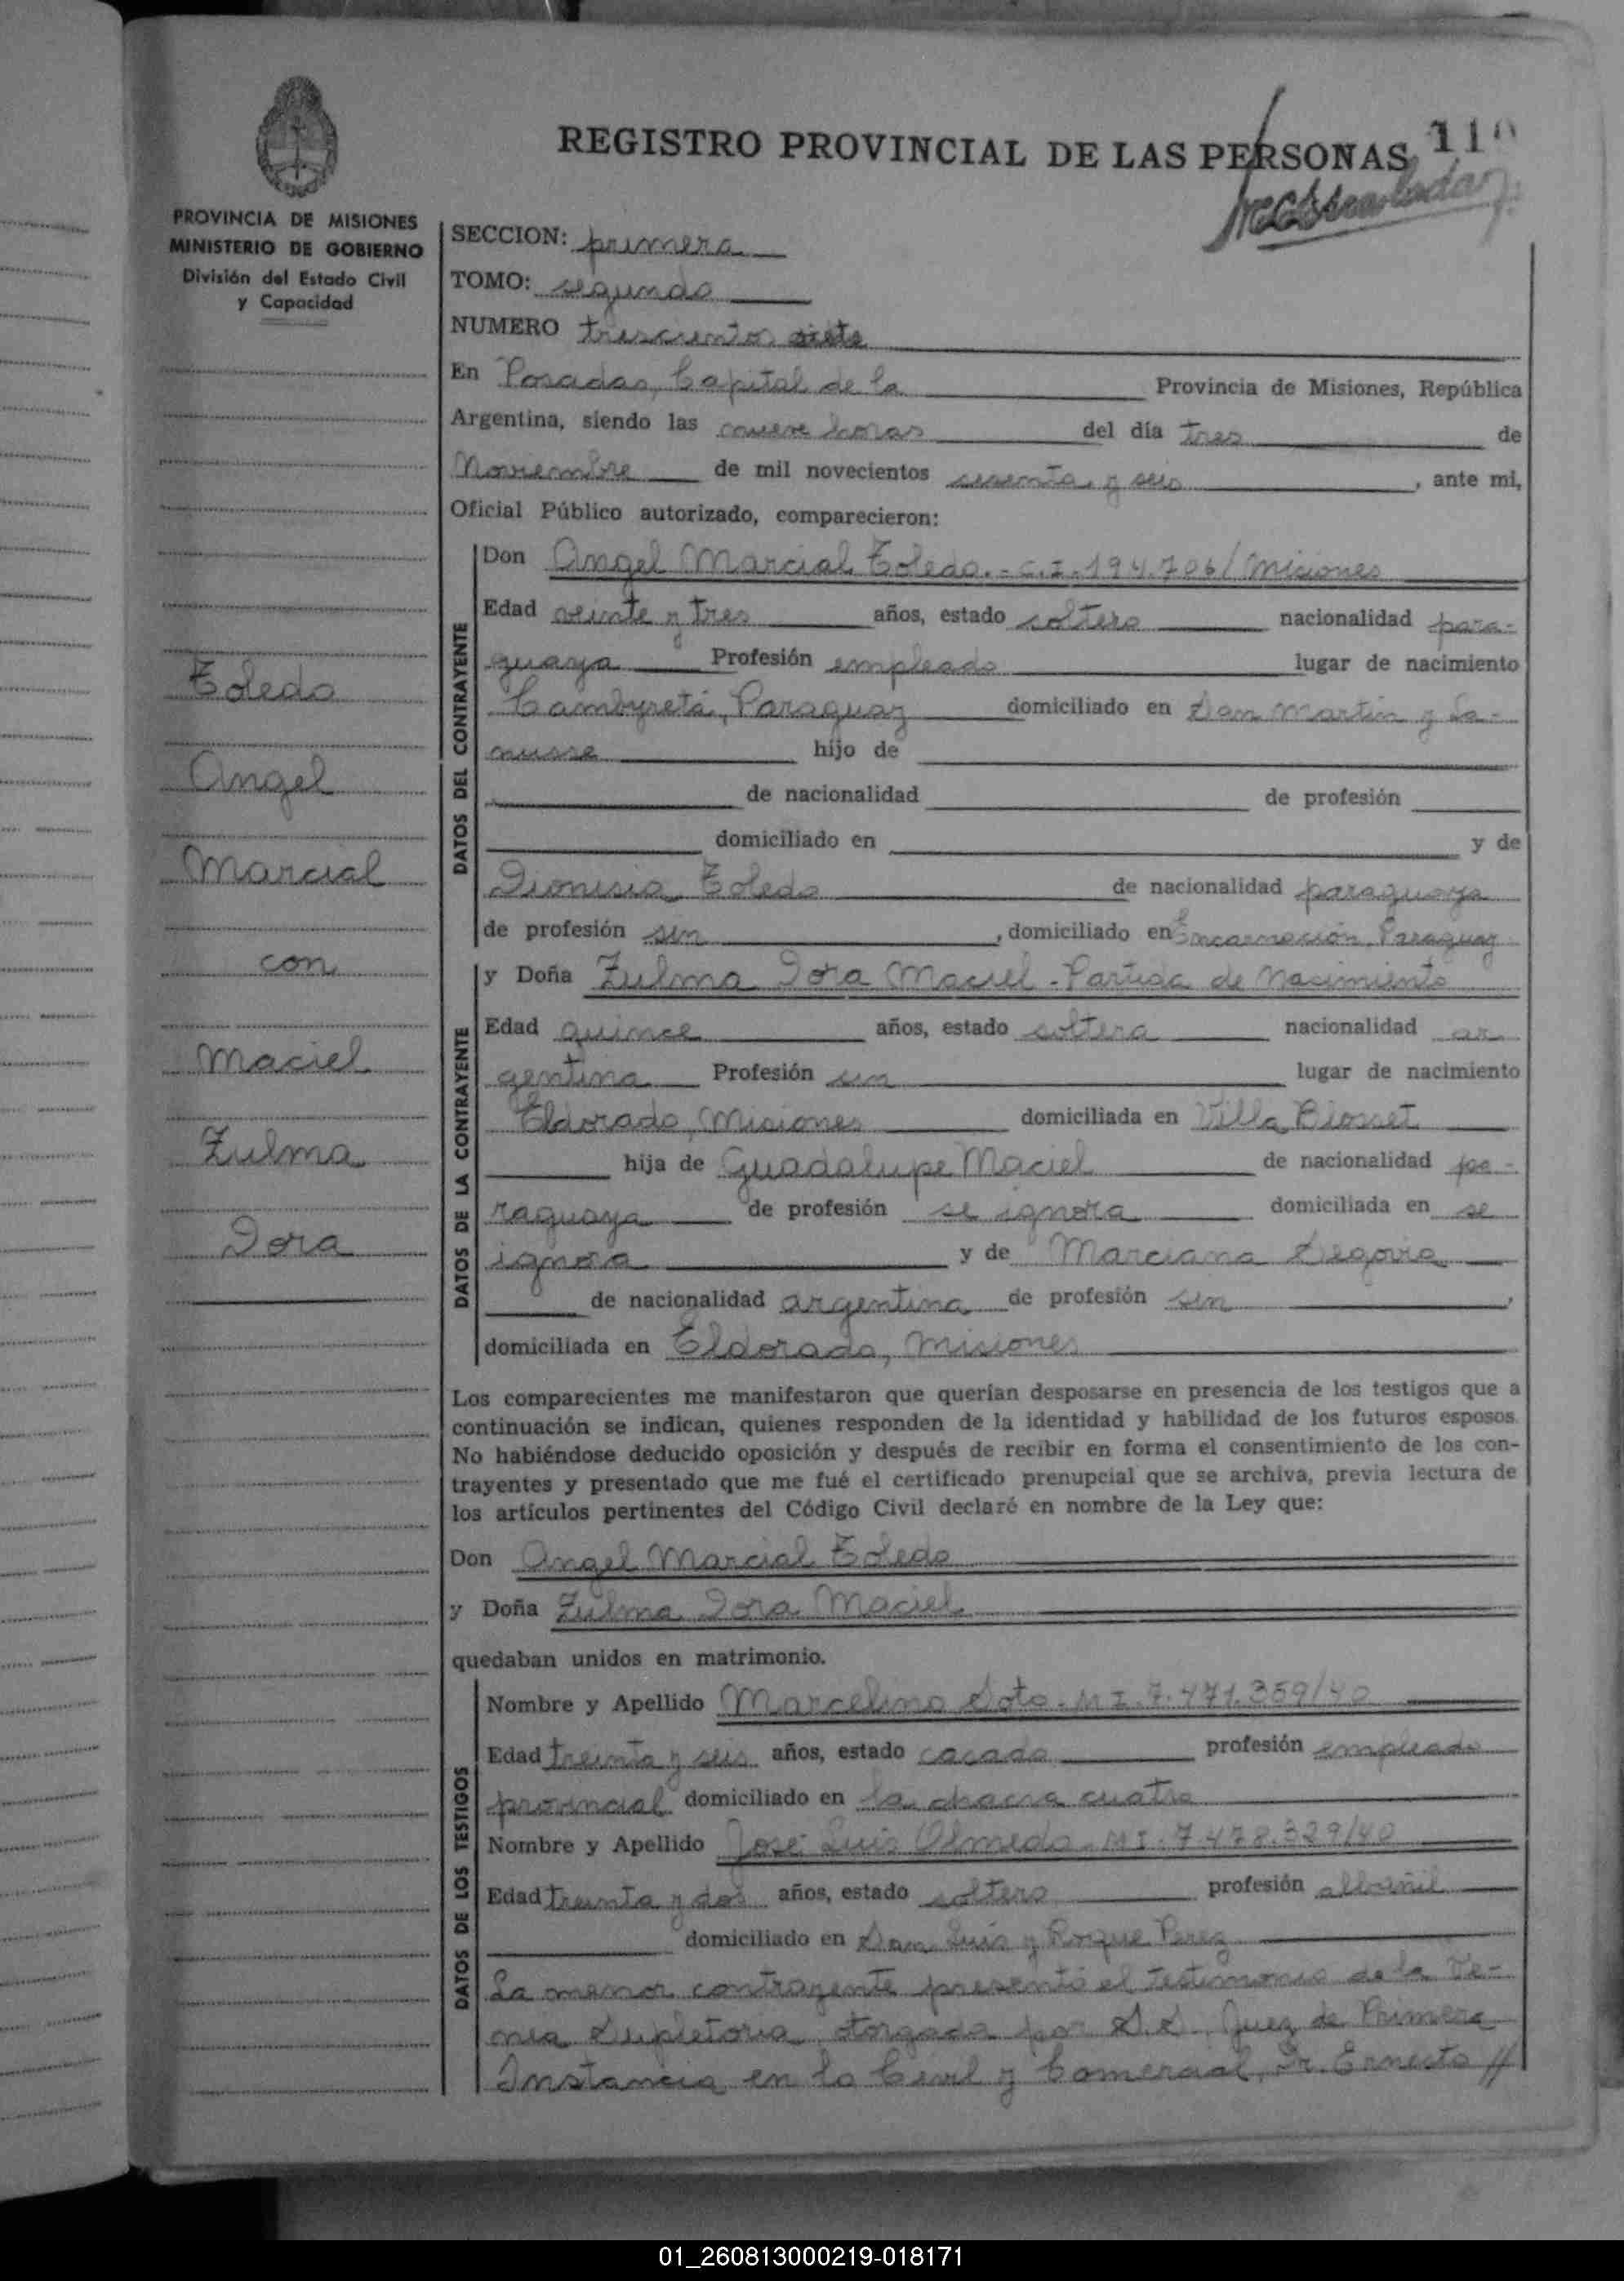 REGISTRO PROVINCIAL DE LAS PERSONAS
PROVINCIA DE MISIONES
MINISTERIO DE GOBIERNO
División del Estado Civil
y Capacidad
SECCION: primera
TOMO: segundo
NUMERO trescientos siete
En Posadas, Capital de la Provincia de Misiones, República
Argentina, siendo las nueve horas del día tres de
Noviembre de mil novecientos sesenta y seis, ante mi,
Oficial Público autorizado, comparecieron:
DATOS DEL CONTRAYENTE
Don Angel Marcial Toledo.- C.I. 194.706/Misiones
Edad veinte y tres años, estado soltero nacionalidad para-
guaya Profesión empleado lugar de nacimiento
Cambyretá, Paraguay domiciliado en San Martín y La-
nusse hijo de
de nacionalidad de profesión
domiciliado en y de
Dionisia Toledo de nacionalidad paraguaya
de profesión sin, domiciliado en Encarnación, Paraguay
Toledo
Angel
Marcial
con
Maciel
Zulma
Dora
DATOS DE LA CONTRAYENTE
y Doña Zulma Dora Maciel - Partida de Nacimiento
Edad quince años, estado soltera nacionalidad ar
gentina Profesión sin lugar de nacimiento
Eldorado, Misiones domiciliada en Villa Blosset
hija de Guadalupe Maciel de nacionalidad pa-
raguaya de profesión se ignora domiciliada en se
ignora y de Marciana Segovia
de nacionalidad argentina de profesión sin,
domiciliada en Eldorado, Misiones
Los comparecientes me manifestaron que querían desposarse en presencia de los testigos que a
continuación se indican, quienes responden de la identidad y habilidad de los futuros esposos.
No habiéndose deducido oposición y después de recibir en forma el consentimiento de los con-
trayentes y presentado que me fué el certificado prenupcial que se archiva, previa lectura de
los artículos pertinentes del Código Civil declaré en nombre de la Ley que:
Don Angel Marcial Toledo
y Doña Zulma Dora Maciel
quedaban unidos en matrimonio.
DATOS DE LOS TESTIGOS
Nombre y Apellido Marcelino Soto - M I. 7.471.359/40
Edad treinta y seis años, estado casado profesión empleado
provincial domiciliado en la chacra cuatro
Nombre y Apellido José Luis Olmedo - M I. 7.478.329/40
Edad treinta y dos años, estado soltero profesión albañil
domiciliado en San Luis y Roque Perez
La menor contrayente presentó el testimonio de la Ve-
nia Supletoria otorgada por S.S. Juez de Primera
Instancia en lo Civil y Comercial, Dr. Ernesto //
01_260813000219-018171